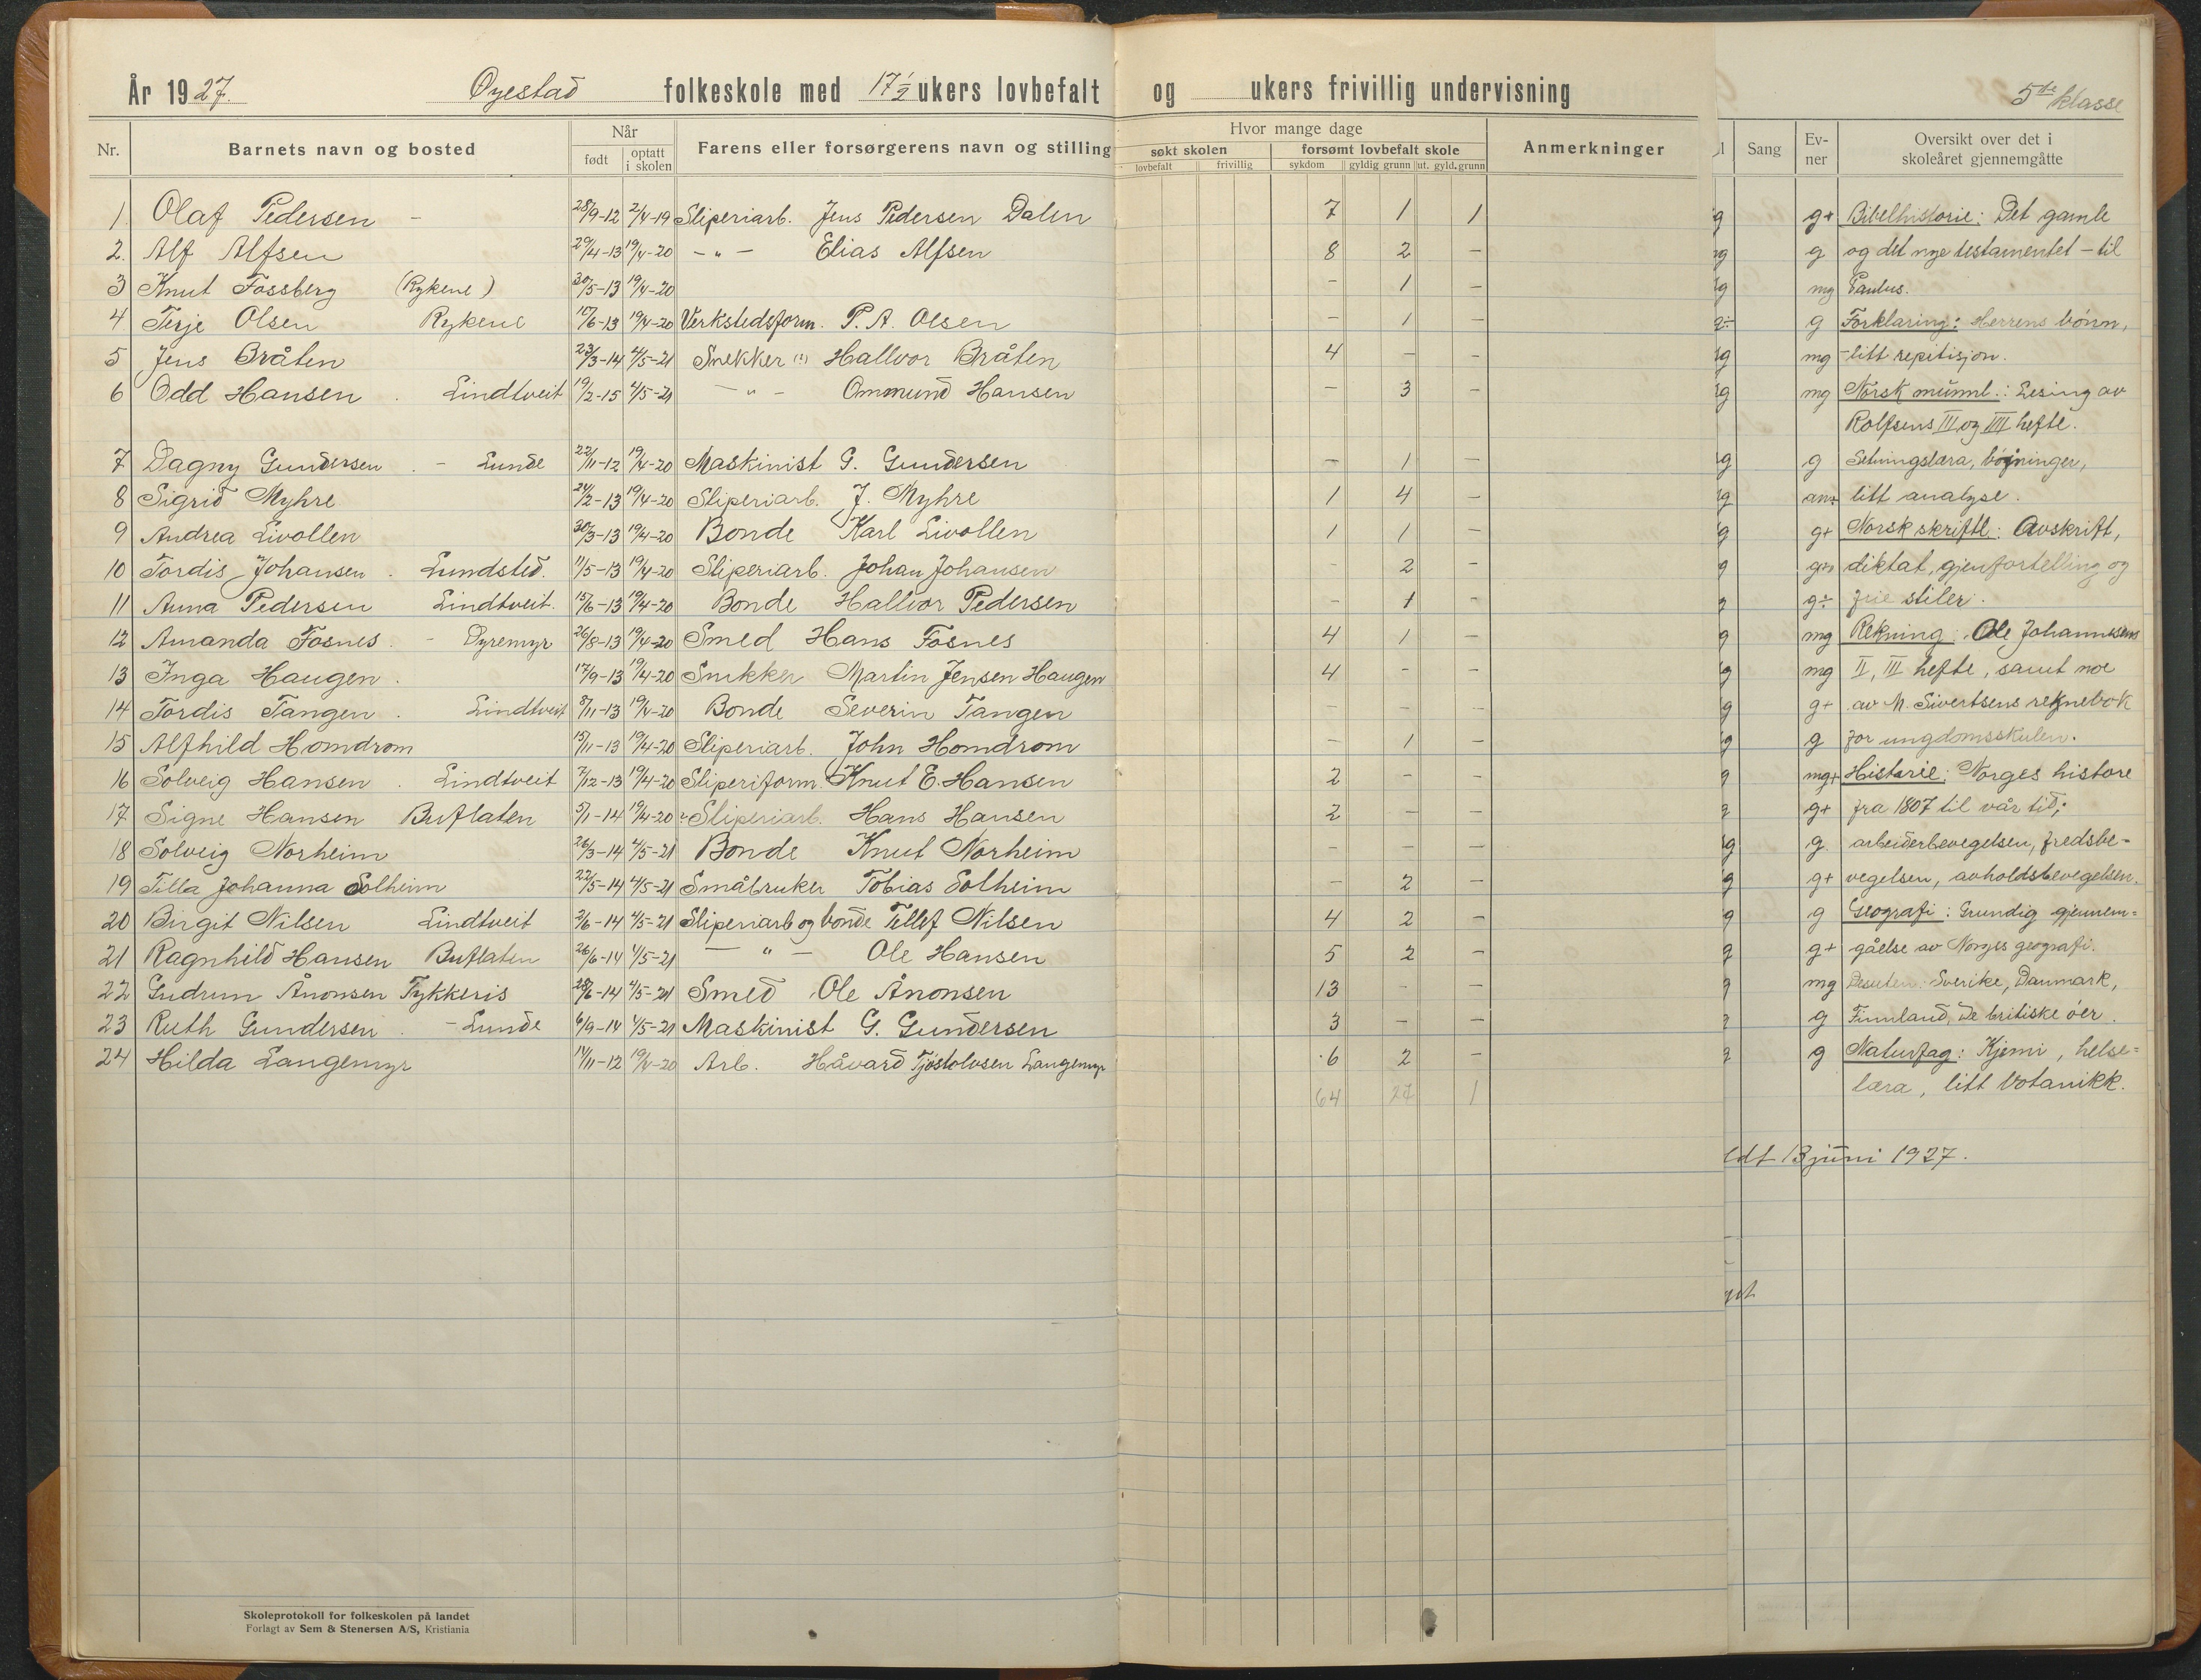 År 1927. Øyestad folkeskole med 17 1/2 ukers lovbefalt og ukers frivillig undervisning
5te klasse
Nr. Barnets navn og bosted Når født optatt i skolen Farens eller forsørgerens navn og stilling Hvor mange dage søkt skolen lovbefalt frivillig forsømt lovbefalt skole sykdom gyldig grunn ut. gyld. grunn Anmerkninger Sang Ev-ner Oversikt over det i skoleåret gjennemgåtte
1. Olaf Pedersen - 28/9-12 2/4-19 Sliperiarb. Jens Pedersen Dalen 7 1 1 g+ Bibelhistorie: Det gamle
2. Alf Alfsen 29/4-13 19/4-20 -"- Elias Alfsen 8 2 - g og det nye testamentet - til
3 Knut Fossberg (Rykene) 30/5-13 19/4-20 - 1 - mg Paulus.
4 Terje Olsen Rykene 10/6-13 19/4-20 Verkstedsform. P. A. Olsen - 1 - g Forklaring: Herrens bønn,
5 Jens Bråten 23/3-14 4/5-21 Snekker (?) Hallvor Bråten 4 - - mg - litt repitisjon.
6 Odd Hansen . Lindtveit 19/2-15 4/5-21 -"- Ommund Hansen - 3 - mg Norsk munnl.: Lesing av
Rolfsens III og IIII hefte.
7 Dagny Gundersen . - Lunde 22/11-12 19/4-20 Maskinist G. Gundersen - 1 - g Setningslæra, bøjninger,
8 Sigrid Myhre 24/2-13 19/4-20 Sliperiarb. J. Myhre 1 4 - litt analyse.
9 Andrea Livollen 30/3-13 19/4-20 Bonde Karl Livollen 1 1 - g+ Norsk skriftl.: Avskrift,
10 Tordis Johansen . Lundsted. 11/5-13 19/4-20 Sliperiarb. Johan Johansen - 2 - diktat, gjenfortelling og
11 Anna Pedersen Lindtveit. 15/6-13 19/4-20 Bonde Hallvor Pedersen - 1 - g÷ frie stiler.
12 Amanda Fosnes . - Dyremyr 26/8-13 19/4-20 Smed Hans Fosnes 4 1 - mg Rekning: Ole Johannesens
13 Inga Haugen . 17/9-13 19/4-20 Snikker Martin Jensen Haugen 4 - - mg II, III hefte, samt noe
14 Tordis Tangen . Lindtveit 8/11-13 19/4-20 Bonde Severin Tangen - - - g+ av M. Sivertsens reknebok
15 Alfhild Homdrom 15/11-13 19/4-20 Sliperiarb. John Homdrom - 1 - g for ungdomsskulen.
16 Solveig Hansen . Lindtveit 7/12-13 19/4-20 Sliperiform. Knut E. Hansen 2 - - mg+ Historie: Norges histore
17 Signe Hansen Buflaten 5/1-14 19/4-20 Sliperiarb. Hans Hansen 2 - - g+ fra 1807 til vår tid;
18 Solveig Norheim 26/3-14 4/5-21 Bonde Knut Norheim - - - g. arbeiderbevegelsen, fredsbe-
19 Tilla Johanna Solheim 22/5-14 4/5-21 Småbruker Tobias Solheim - 2 - g+ vegelsen, avholdsbevegelsen.
20 Birgit Nilsen Lindtveit 2/6-14 4/5-21 Sliperiarb og bonde Tellef Nilsen 4 2 - g Geografi: Grundig gjennem-
21 Ragnhild Hansen Buflaten 26/6-14 4/5-21 -"- Ole Hansen 5 2 - g+ gåelse av Norges geografi.
22 Gudrun Ånonsen Tykkeris 28/6-14 4/5-21 Smed Ole Ånonsen 13 - - mg Desuten: Sverike, Danmark,
23 Ruth Gundersen . - Lunde 6/9-14 4/5-21 Maskinist G. Gundersen 3 - - g Finnland, De britiske øer.
24 Hilda Langemyr 14/11-12 19/4-20 Arb. Håvard Tjøstolvsen Langemyr 6 2 - g Naturfag: Kjemi, helse-
64 27 1 læra, litt botanikk.
13 juni 1927.
Skoleprotokoll for folkeskolen på landet
Forlagt av Sem & Stenersen A/S, Kristiania